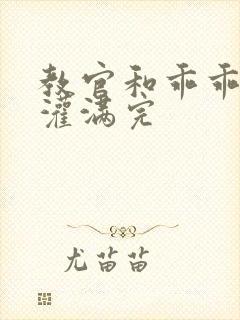 教官和乖乖
灌满完
尤苗苗